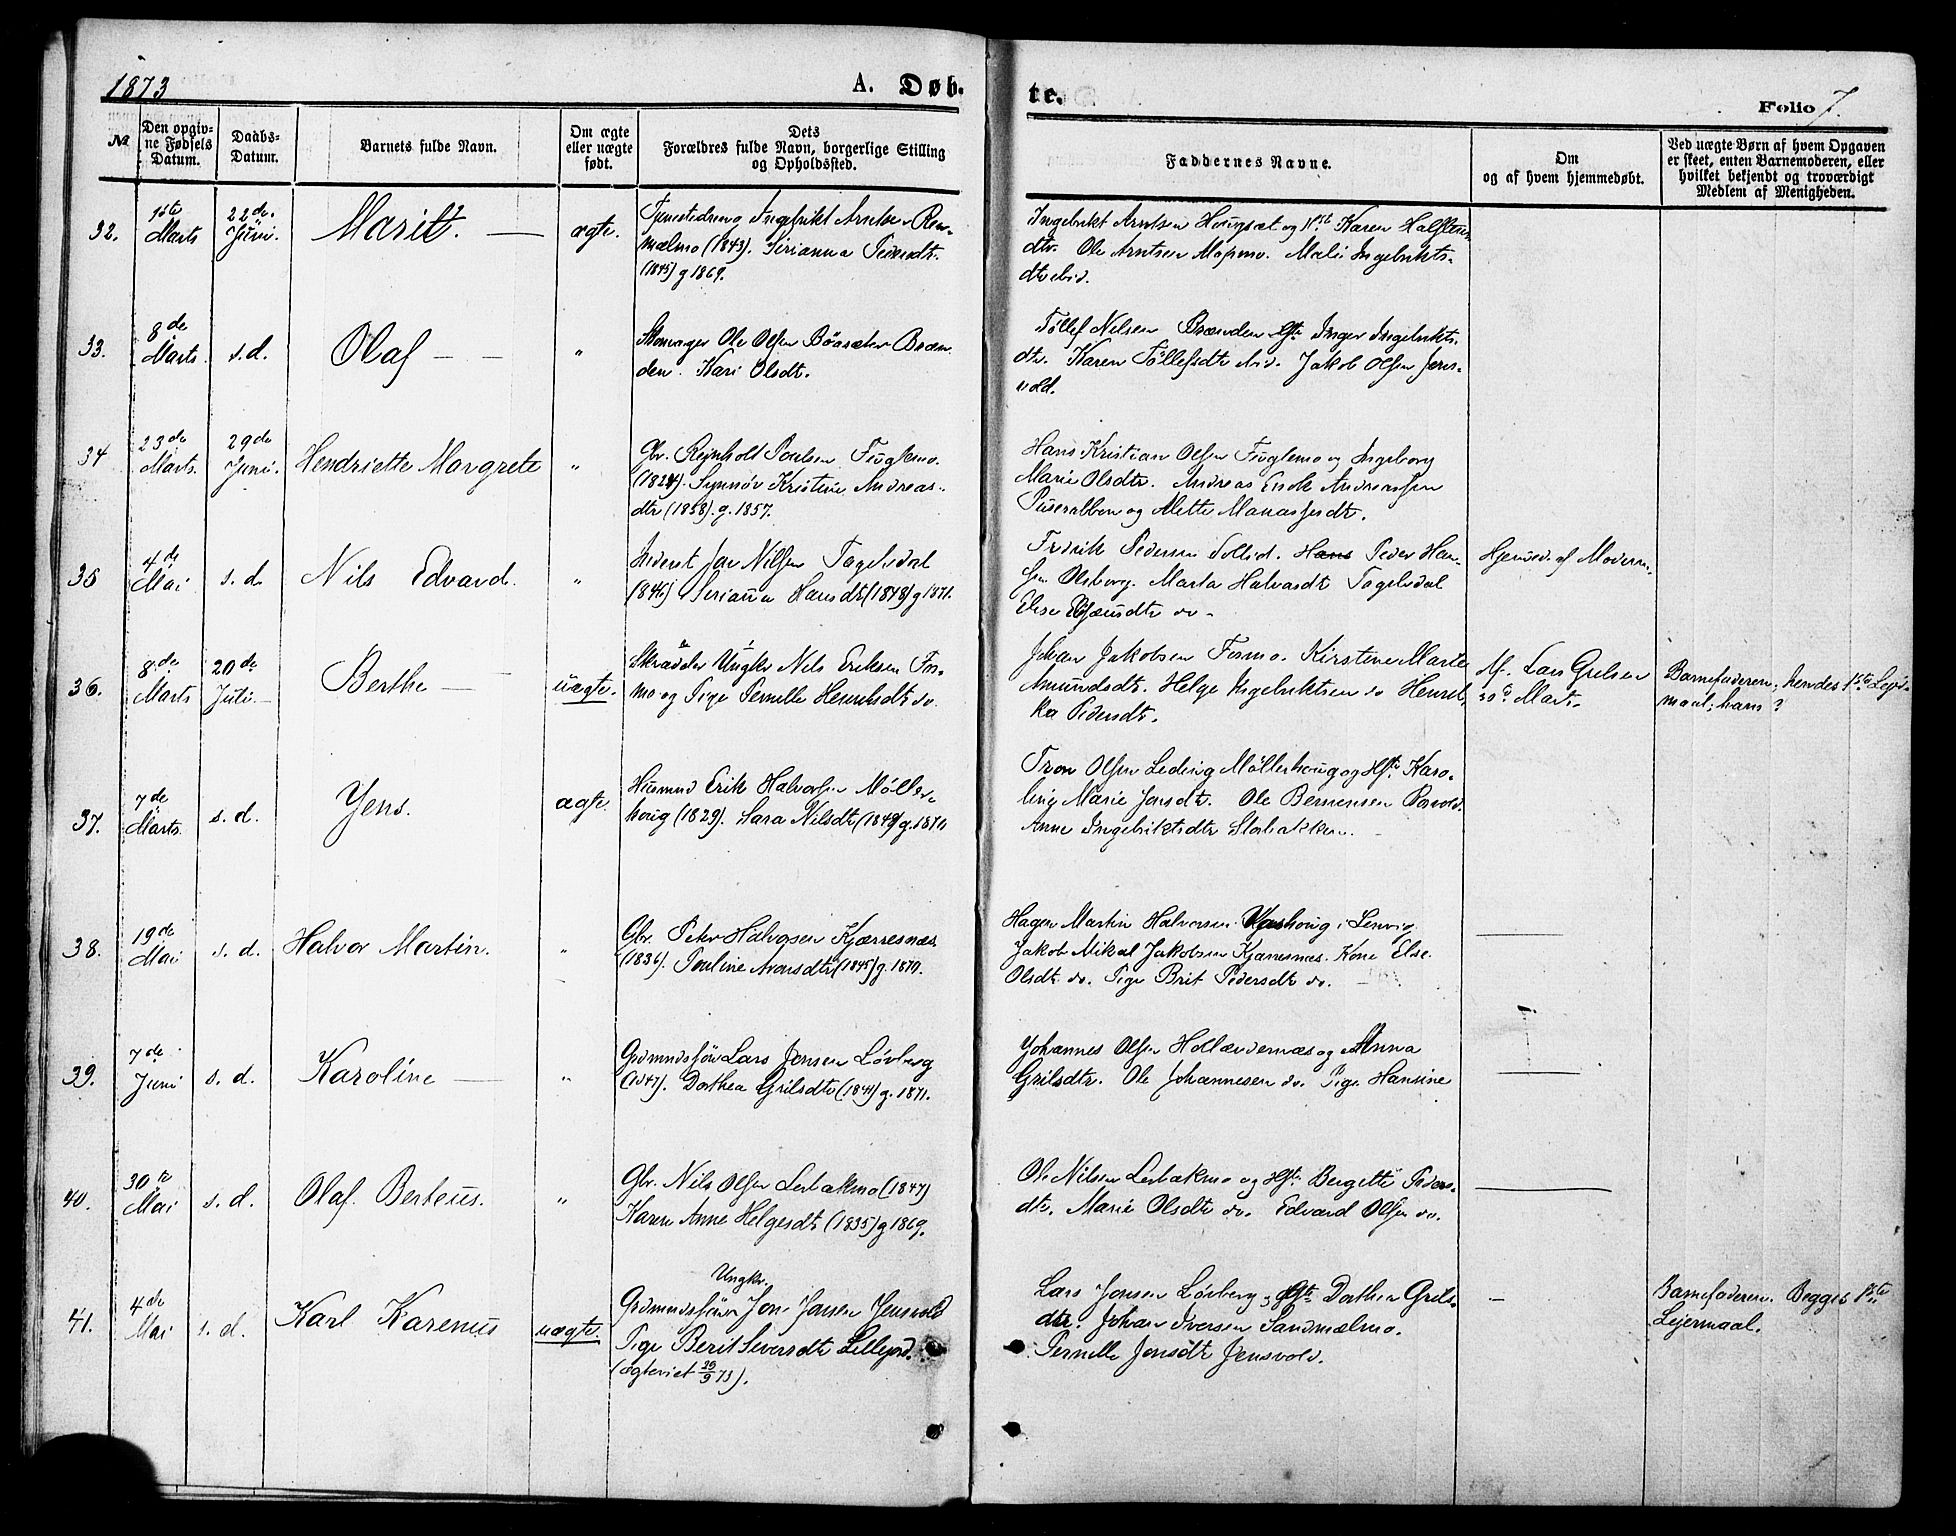 1873
A. Døb-
te.
Folio 7.
№
Den opgiv-
ne Fødsels
Datum.
Daabs-
Datum.
Barnets fulde Navn.
Om ægte
eller uægte
født.
Dets
Forældres fulde Navn, borgerlige Stilling
og Opholdssted.
Faddernes Navne.
Om
og af hvem hjemmedøbt.
Ved uægte Børn af hvem Opgaven
er skeet, enten Barnemoderen, eller
hvilket bekjendt og troværdigt
Medlem af Menigheden.
32.
1ste
Marts
22de
Juni.
Marit. —
ægte.
Tjenestedreng Ingebrikt Arntsen
mælmo (1843). Serianna Pedersdtr.
(1845) g 1869.
Ingebrikt Arntsen Hougsæt og Karen
dtr. Ole Arntsen Mapmo. Mali Ingebrikts-
dtr ibid.
33.
8de
Marts.
s.d.
Olaf — —
"
Ole Olsen Bræn-
den. Kari Olsdt.
Tøllef Nilsen Brænden Inger Ingebrikts-
dtr. Karen Tøllefsdtr ibid. Jakob Olsen Jens-
vold.
34
23de
Marts.
29de
Juni.
Hendriette Margrete
"
Gbr. Reinholdt Poulsen Fuglemo.
(1824). Synnøv Kristine Andreas-
dtr (1838). g. 1857.
Hans Kristian Olsen Fuglemo og Ingeborg
Marie Olsdtr. Andreas Andreassen
og Mette Manassesdtr.
35
4de
Mai
s. d.
Nils Edvard.
"
Inderst Jon Nilsen Fagelidal
(1846) Serianna Hansdtr (1848) g 1871.
Fredrik Pedersen Sollid. Hans Peder Han-
sen Olsborg. Marta Halvardtr Fagelidal
Else do -
Hjemmed. af Moderen.
36.
8de
Marts
20de
Juli.
Berthe —
uægte.
Skrædder Ungkr Nils Eriksen Fos-
mo og Pige Pernille Henriksdtr do.
Johan Jakobsen Fosmo. Kirstine Marte
Amundsdtr. Helge Ingebriktsen do Henrik-
ka Pedersdtr.
Af. Lars Grelsen
30d Marts
Barnefaderen; hendes 1ste Leier-
maal; hans ?
37.
7de
Marts.
s. d.
Jens.
ægte.
Husmand Erik Halvorsen Møller-
houg (1829). Sara Nilsdtr (1849) g. 1870
Tron Olsen Leding Møllerhoug og Hst. Karo-
line Marie Jonsdtr. Ole Berntsen
Anne Ingebriktsdtr Storbakken.
38.
19de
Mai
s. d.
Halvor Martin.
"
Gbr. Peter Halvorsen Kjærresnæs
(1836). Pouline Aronsdtr (1845) g. 1870.
Hagen Martin Halvorsen i Lenvig.
Jakob Mikal Jakobsen Kjærresnæs. Kone Else
Olsdtr do. Pige Brit Pedersdtr do.
39.
7de
Juni
s. d.
Karoline —
"
Grdmndsføder Lars Jonsen Løvberg
(1847). Dorthea Grilsdtr (1841) g. 1871.
Johannes Olsen Hollændernæs og Anna
Grilsdtr. Ole Johannesen do. Pige Hansine
40.
30te
Mai
s. d.
Olaf Berteus.
"
Gbr. Nils Olsen Lerbakmo (1847)
Karen Anne Helgesdtr (1835) g 1869.
Ole Nilsen Lerbakmo og Hst. Bergitte Peders-
dtr. Marie Olsdtr do. Edvard Olsen do.
41.
4de
Mai
s. d.
Karl Karenus
uægte.
Ungkr.
Jon Jonsen Jensvold
Pige Berit Siversdtr
(ægteviet 29/9 73).
Lars Jonsen Løvberg, Dorthea Grils-
dtr. Johan Iversen Sandmælmo.
Pernille Jonsdtr Jensvold.
Barnefaderen. Begges 1ste
Lejermaal.